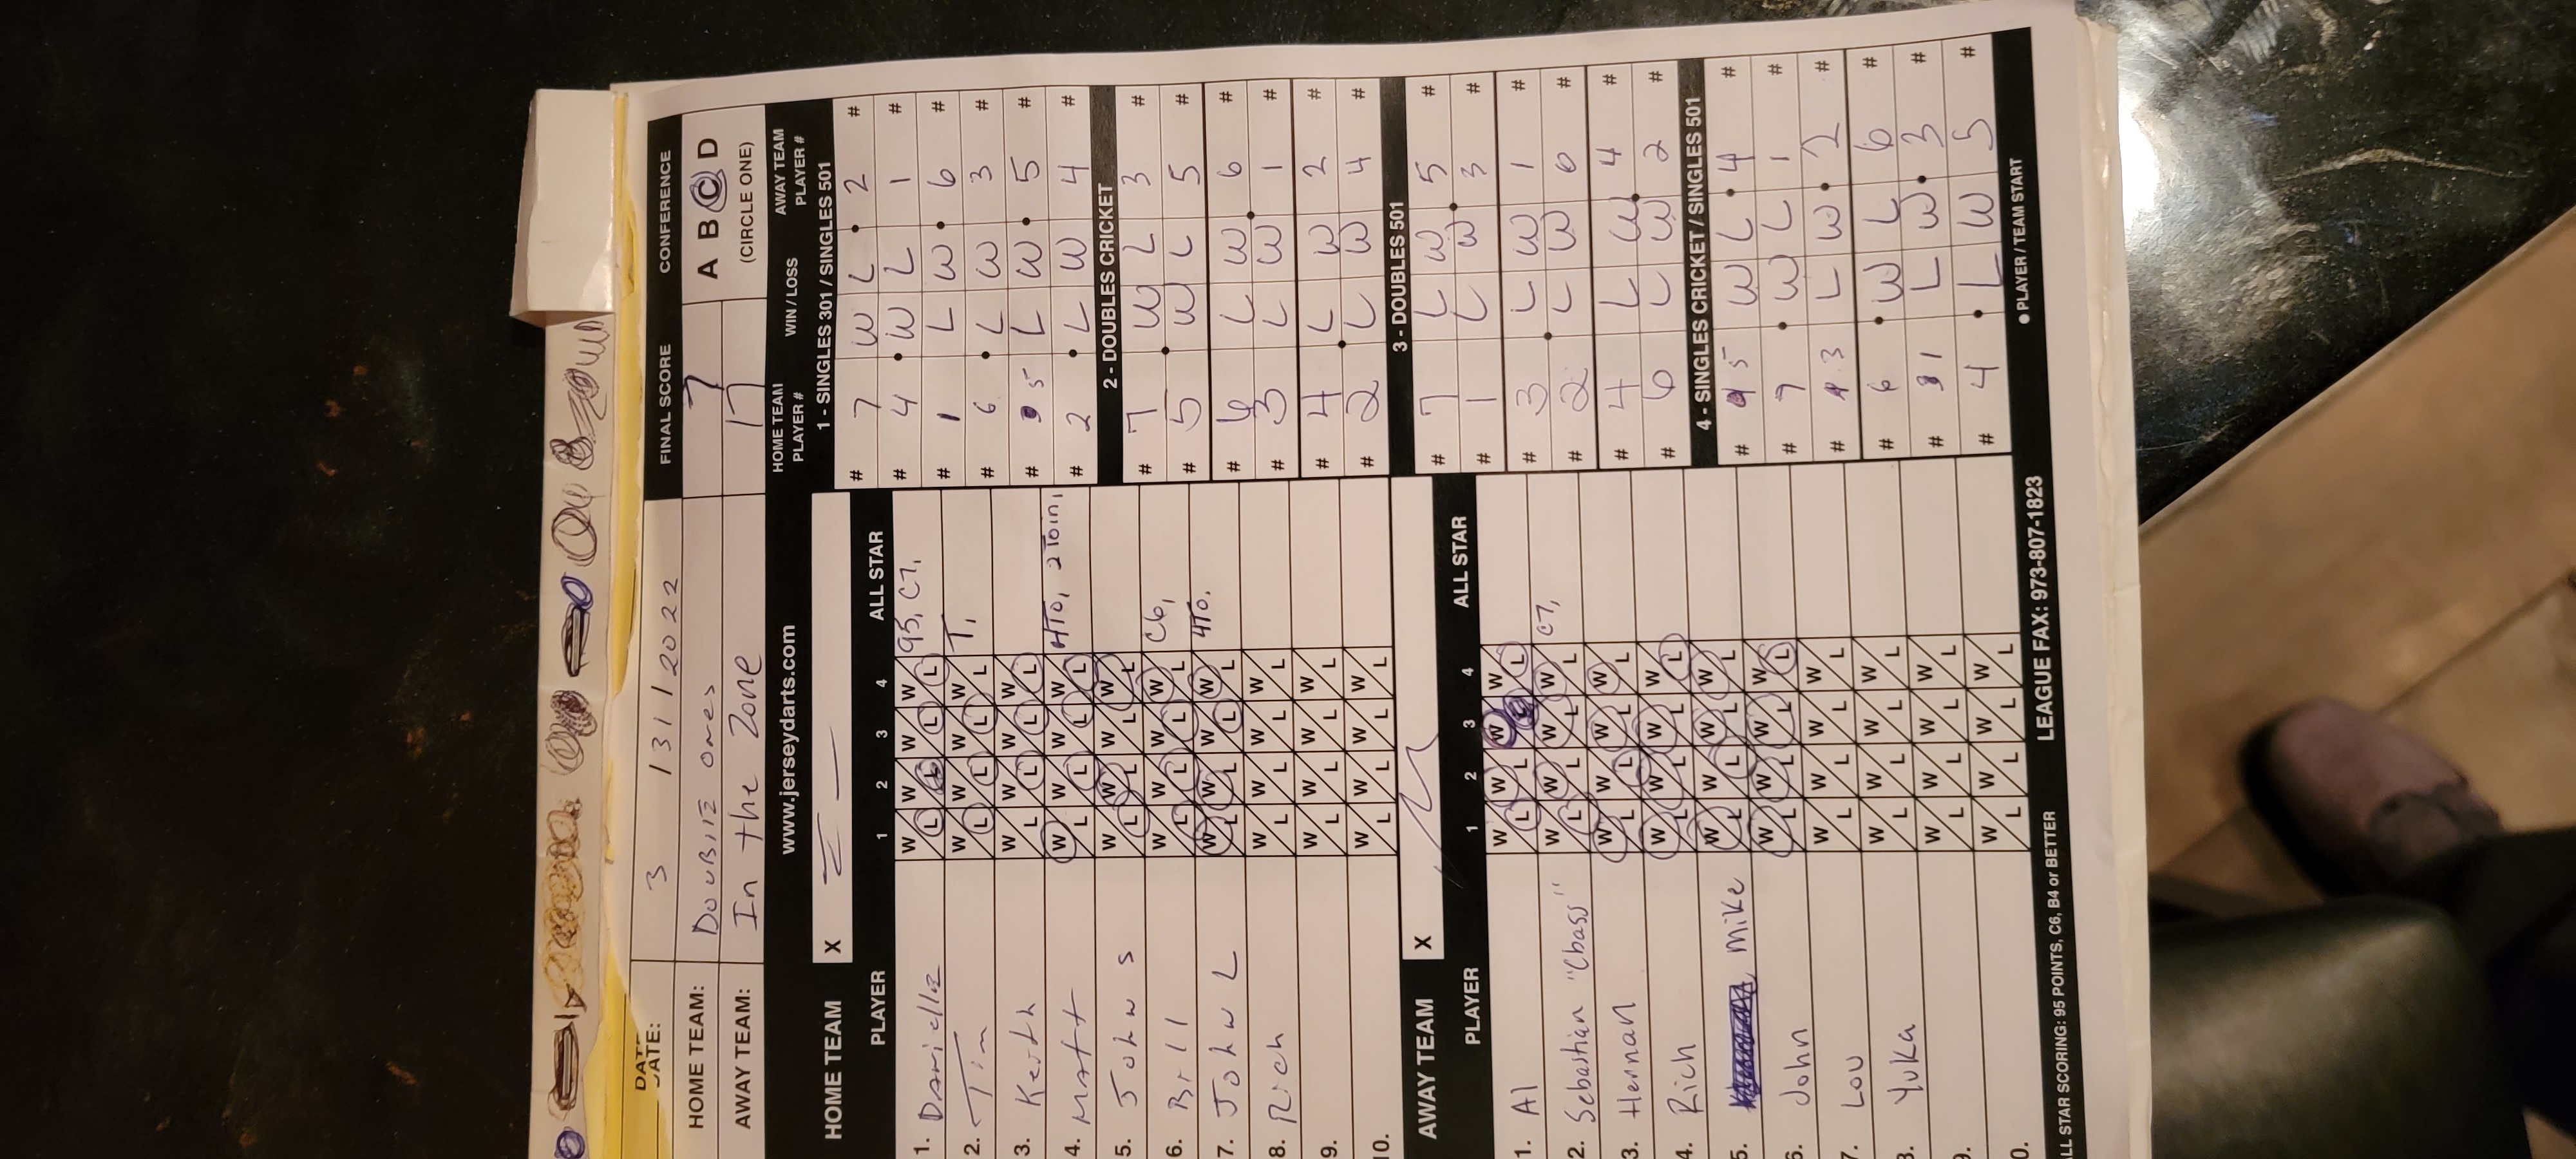 DATE: 3 / 31 / 2022 FINAL SCORE CONFERENCE
HOME TEAM: DOUBLE ONES 7 A B C D
AWAY TEAM: In the Zone 17 (CIRCLE ONE)
www.jerseydarts.com
HOME TEAM X
PLAYER 1 2 3 4 ALL STAR
1. Danielle W L W L W L W L 95, C7,
2. Tim W L W L W L W L T,
3. Keith W L W L W L W L
4. Matt W L W L W L W L HTO, 2 Toin,
5. John S W L W L W L W L
6. Bill W L W L W L W L C6,
7. John L W L W L W L W L HTO.
8. Rich W L W L W L W L
9. W L W L W L W L
10. W L W L W L W L
AWAY TEAM X
PLAYER 1 2 3 4 ALL STAR
1. Al W L W L W L W L
2. Sebastian "Cbass" W L W L W L W L C7,
3. Hernan W L W L W L W L
4. Rich W L W L W L W L
5. Mike W L W L W L W L
6. John W L W L W L W L
7. Lou W L W L W L W L
8. Yuka W L W L W L W L
9. W L W L W L W L
0. W L W L W L W L
ALL STAR SCORING: 95 POINTS, C6, B4 or BETTER LEAGUE FAX: 973-807-1823
HOME TEAM PLAYER # WIN / LOSS AWAY TEAM PLAYER #
1 - SINGLES 301 / SINGLES 501
# 7 W L 2 #
# 4 W L 1 #
# 1 L W 6 #
# 6 L W 3 #
# 5 L W 5 #
# 2 L W 4 #
2 - DOUBLES CRICKET
# 7 W L 3 #
# 5 W L 5 #
# 6 L W 6 #
# 3 L W 1 #
# 4 L W 2 #
# 2 L W 4 #
3 - DOUBLES 501
# 7 L W 5 #
# 1 L W 3 #
# 3 L W 1 #
# 2 L W 6 #
# 4 L W 4 #
# 6 L W 2 #
4 - SINGLES CRICKET / SINGLES 501
# 5 W L 4 #
# 7 W L 1 #
# 3 L W 2 #
# 6 W L 6 #
# 1 L W 3 #
# 4 L W 5 #
● PLAYER / TEAM START